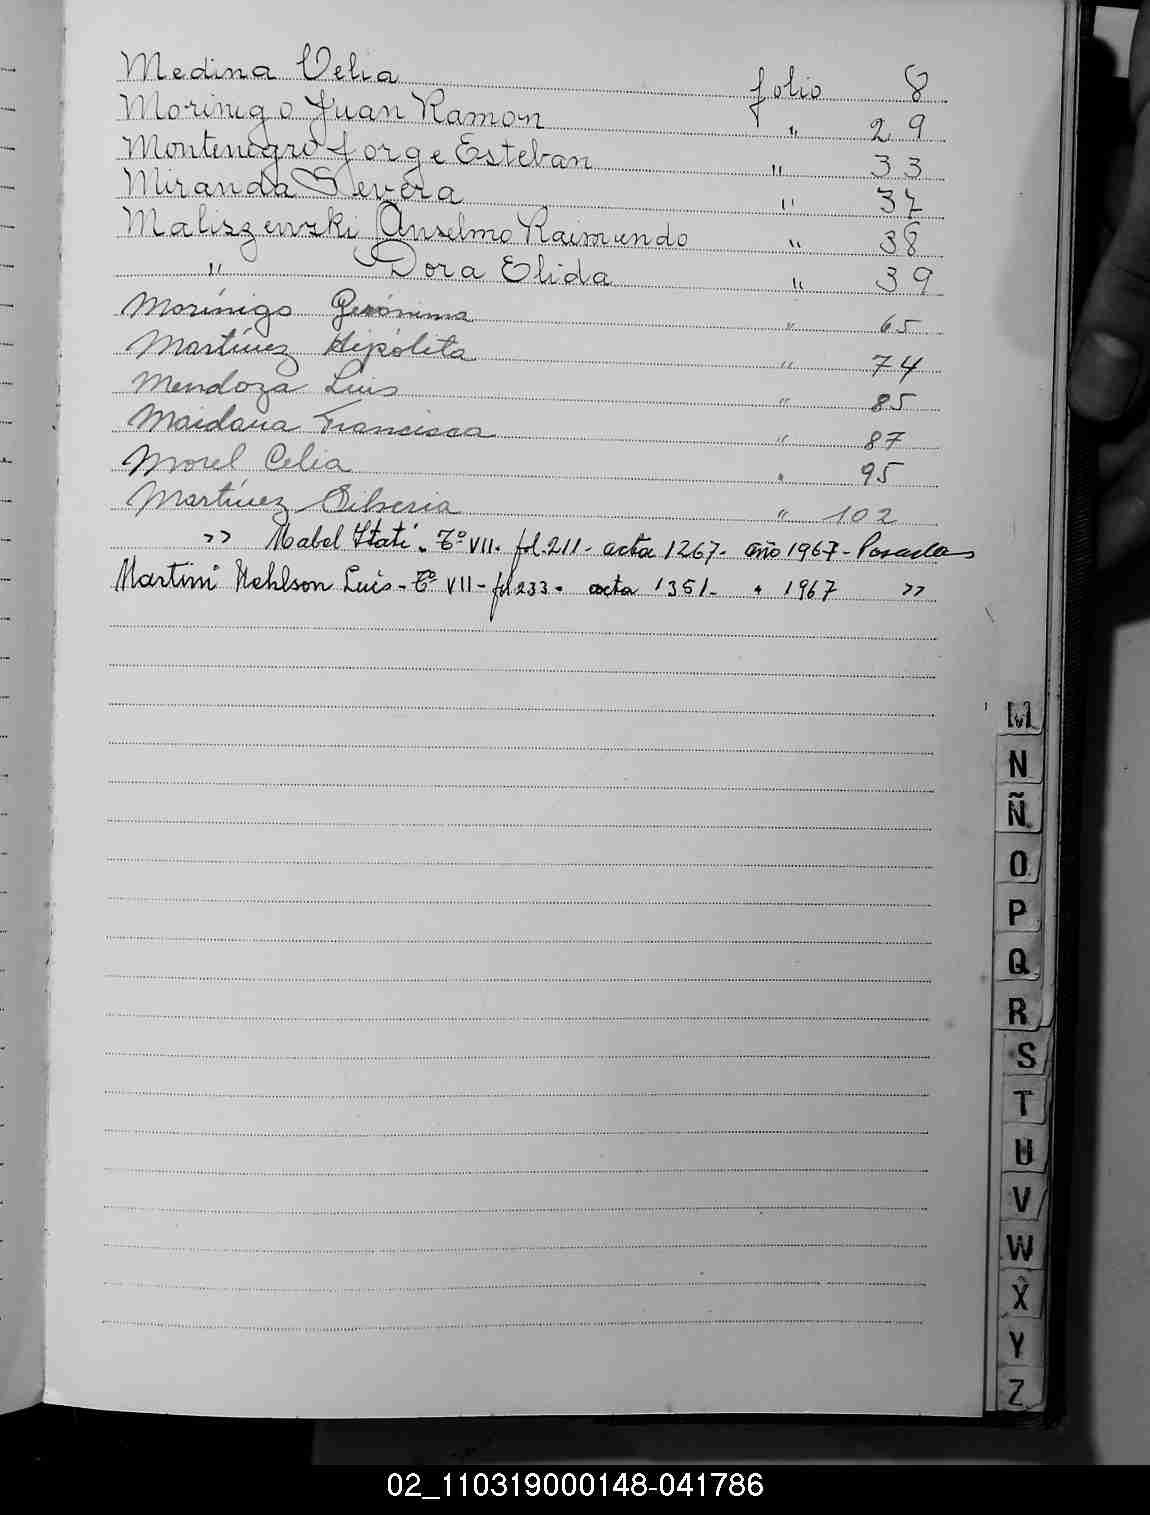 Medina Velia folio 8
Morinigo Juan Ramon " 29
Montenegro Jorge Esteban " 33
Miranda Severa " 37
Maliszewski Anselmo Raimundo " 38
" Dora Elida " 39
Morínigo Gerónima " 65
Martínez Hipólita " 74
Mendoza Luis " 85
Maidana Francisca " 87
Morel Celia " 95
Martínez Silveria " 102
" Mabel Itatí - Tº VII - fol. 211 - acta 1267 - año 1967 - Posadas
Martini Nehlson Luis - Tº VII - fol 233 - acta 1351 - " 1967 "
M
N
Ñ
O
P
Q
R
S
T
U
V
W
X
Y
Z
02_110319000148-041786